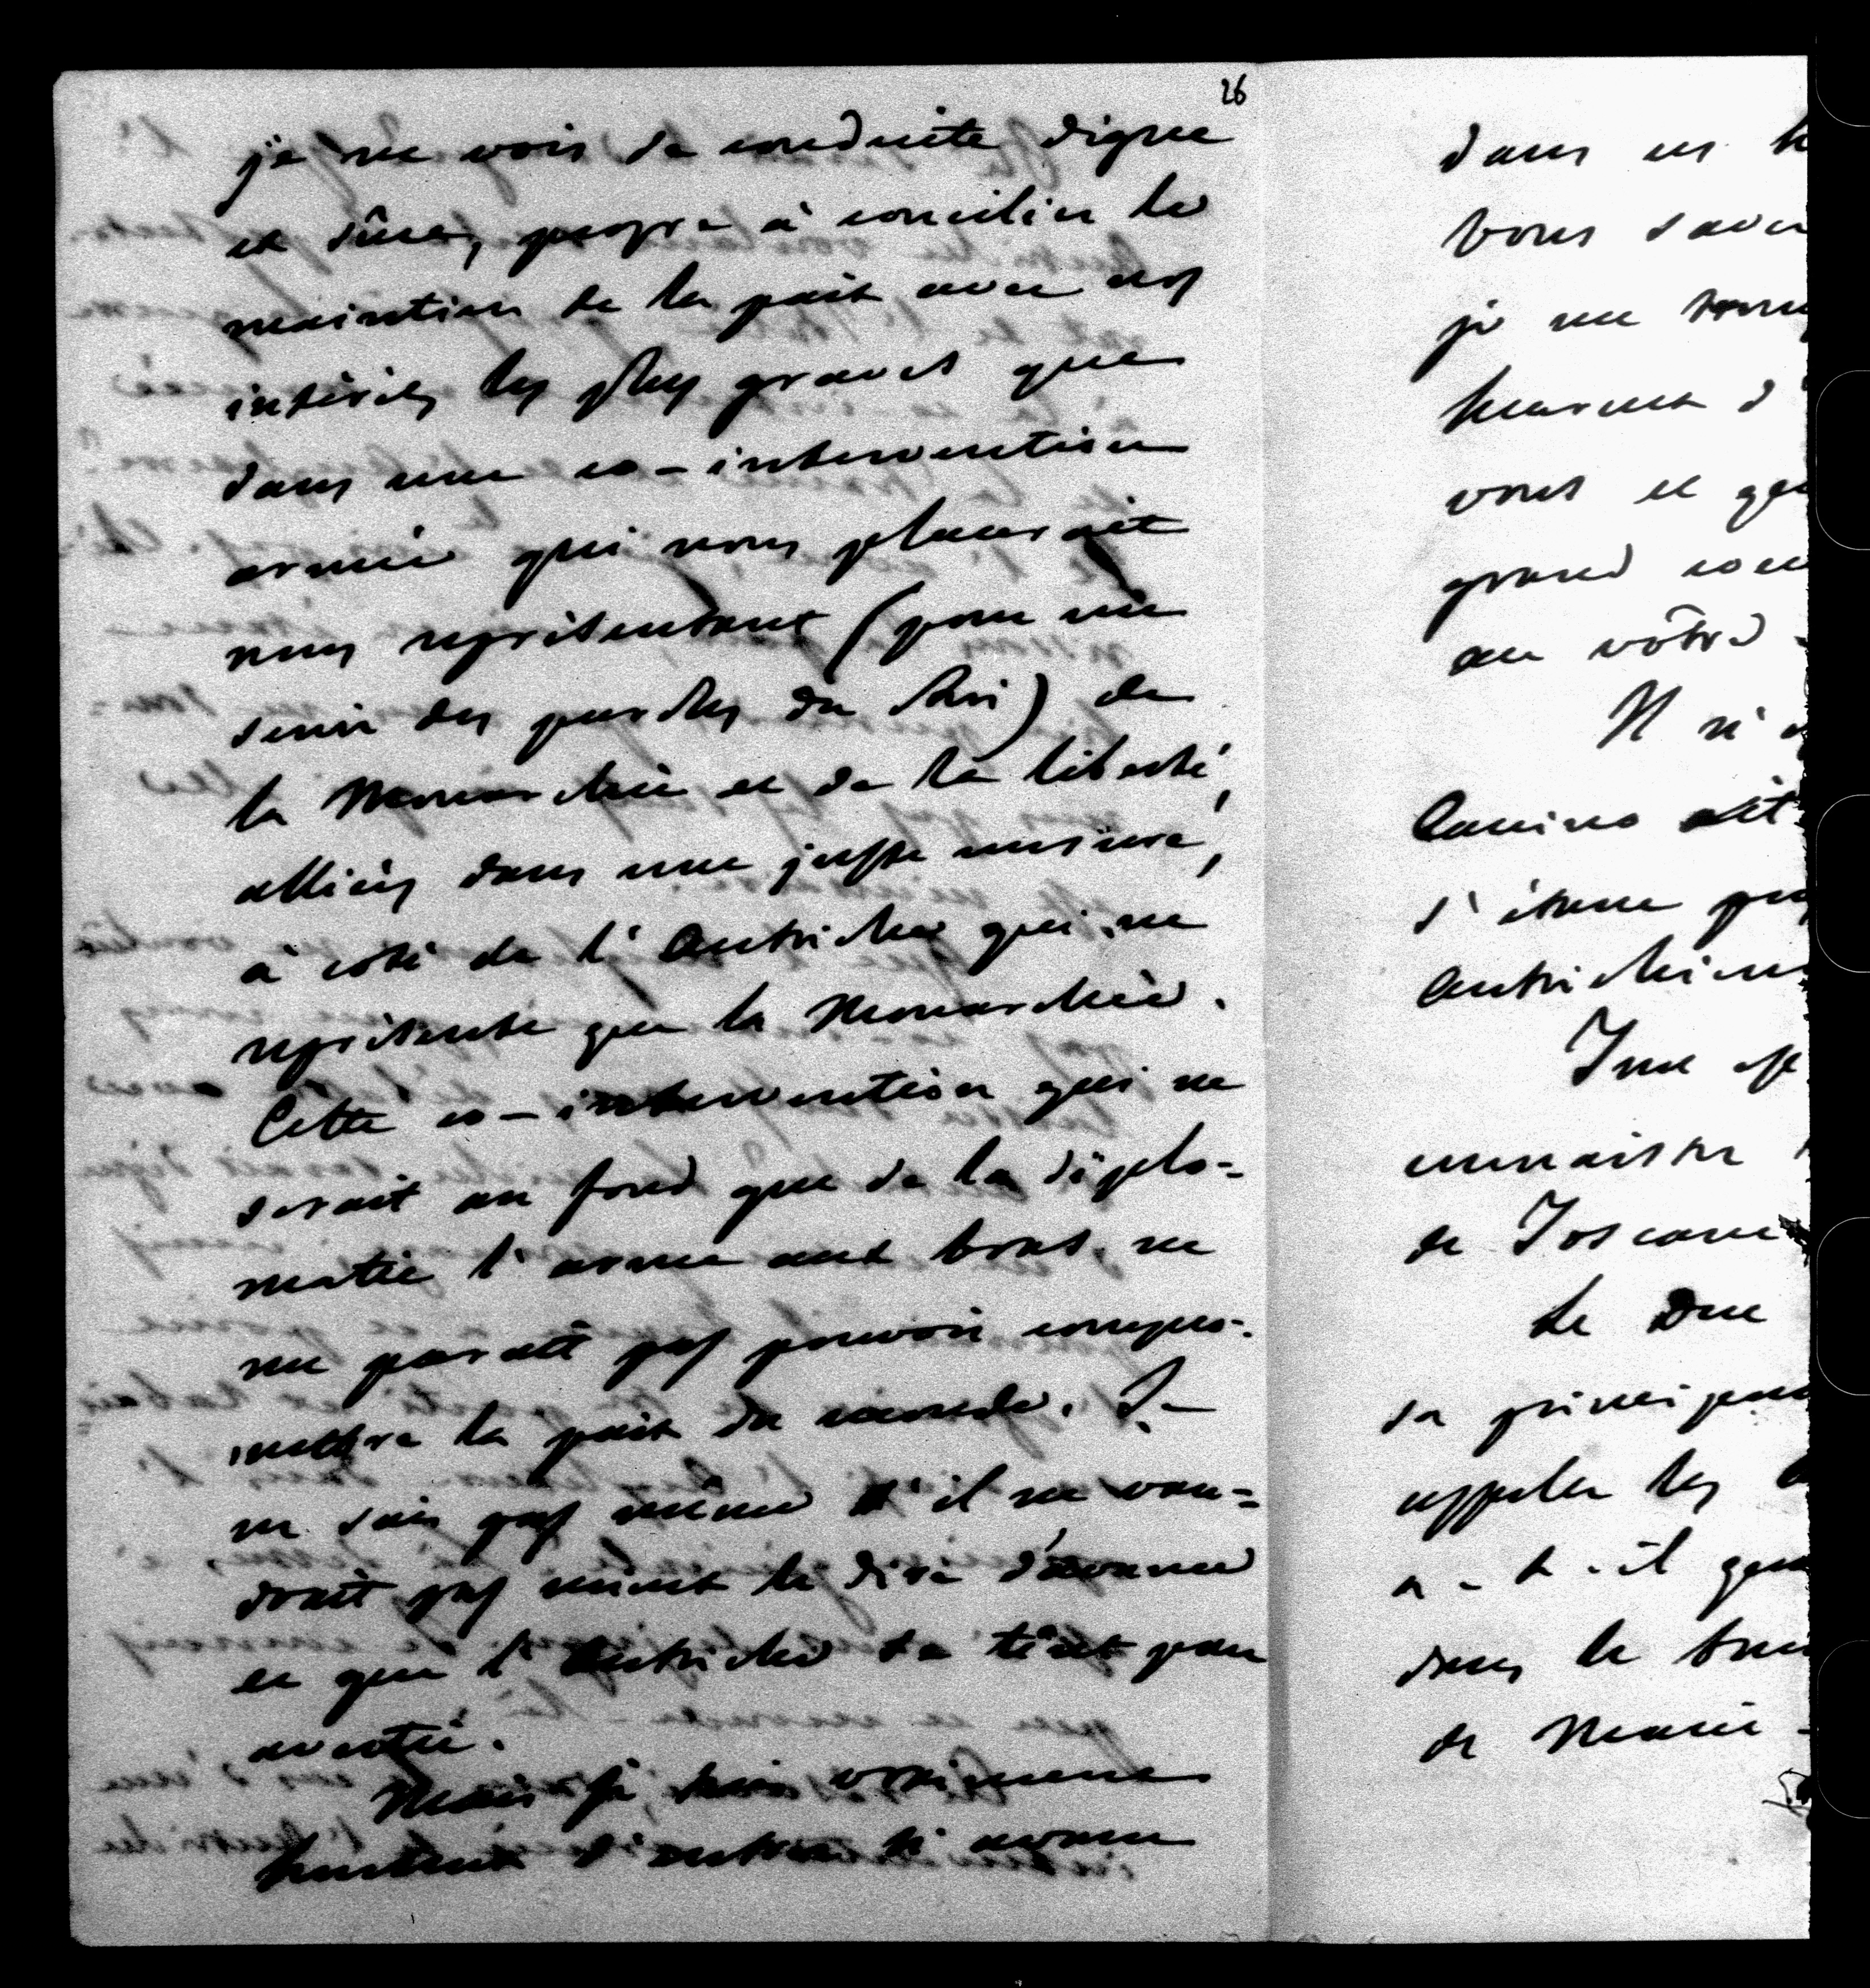 26
je ne vois de conduite digne
et sûre, propre à concilier le
maintien de la paix avec nos
intérêts les plus graves que
dans une co-intervention
armée qui nous placerait
nous représentant (pour me
servir des paroles du Roi) de
la Monarchie et de la liberté,
alliées dans une juste mesure,
à coté de l'Autriche qui ne
représente que la Monarchie.
Cette co-intervention qui ne
serait au fond que de la diplo-
matie l'arme aux bras, ne
me parait pas pouvoir compro-
mettre la paix du monde. Je
ne sais pas même s'il ne vau-
drait pas mieux le dire d'avance
et que l'Autriche se tint pour
avertie.
Mais je suis vraiment
honteux d'entrer si avant
dans ces
vous save
je me
heureux d'
vous et que
grand
au vôtre.
Il n'
Canino
s'étant
Autrichien
de Toscane
Le Duc
sa princip
appeler les
a-t-il
dans le
de Marie-